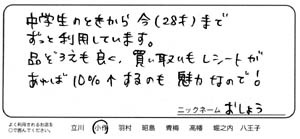 中学生のときから今(28才)まで
ずっと利用しています。
品ぞろえも良く、買い取りもレシートが
あれば10%↑するのも魅力なので!
ニックネーム おしょう
よく利用されるお店を
○で囲んでください。
立川 小作 羽村 昭島 青梅 高幡 堀之内 八王子